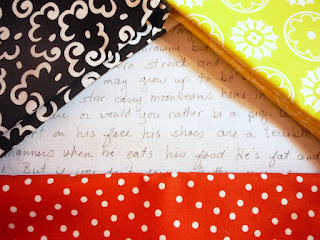 brawny but
streak and
may grow up to be
star cary moonbeams home in
or would you rather be a pig
on his face his shoes are a terrible
manners when he eats his food He's fat and
But if you don't